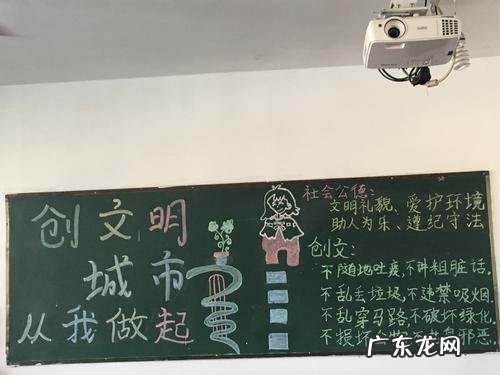 创文明
城市
从我做起
社会公德:
文明礼貌、爱护环境
助人为乐、遵纪守法
创文:
不随地吐痰,不讲粗脏话,
不乱丢垃圾,不违禁吸烟
不乱穿马路,不破坏绿化
不损坏公物,邪恶
广东龙网